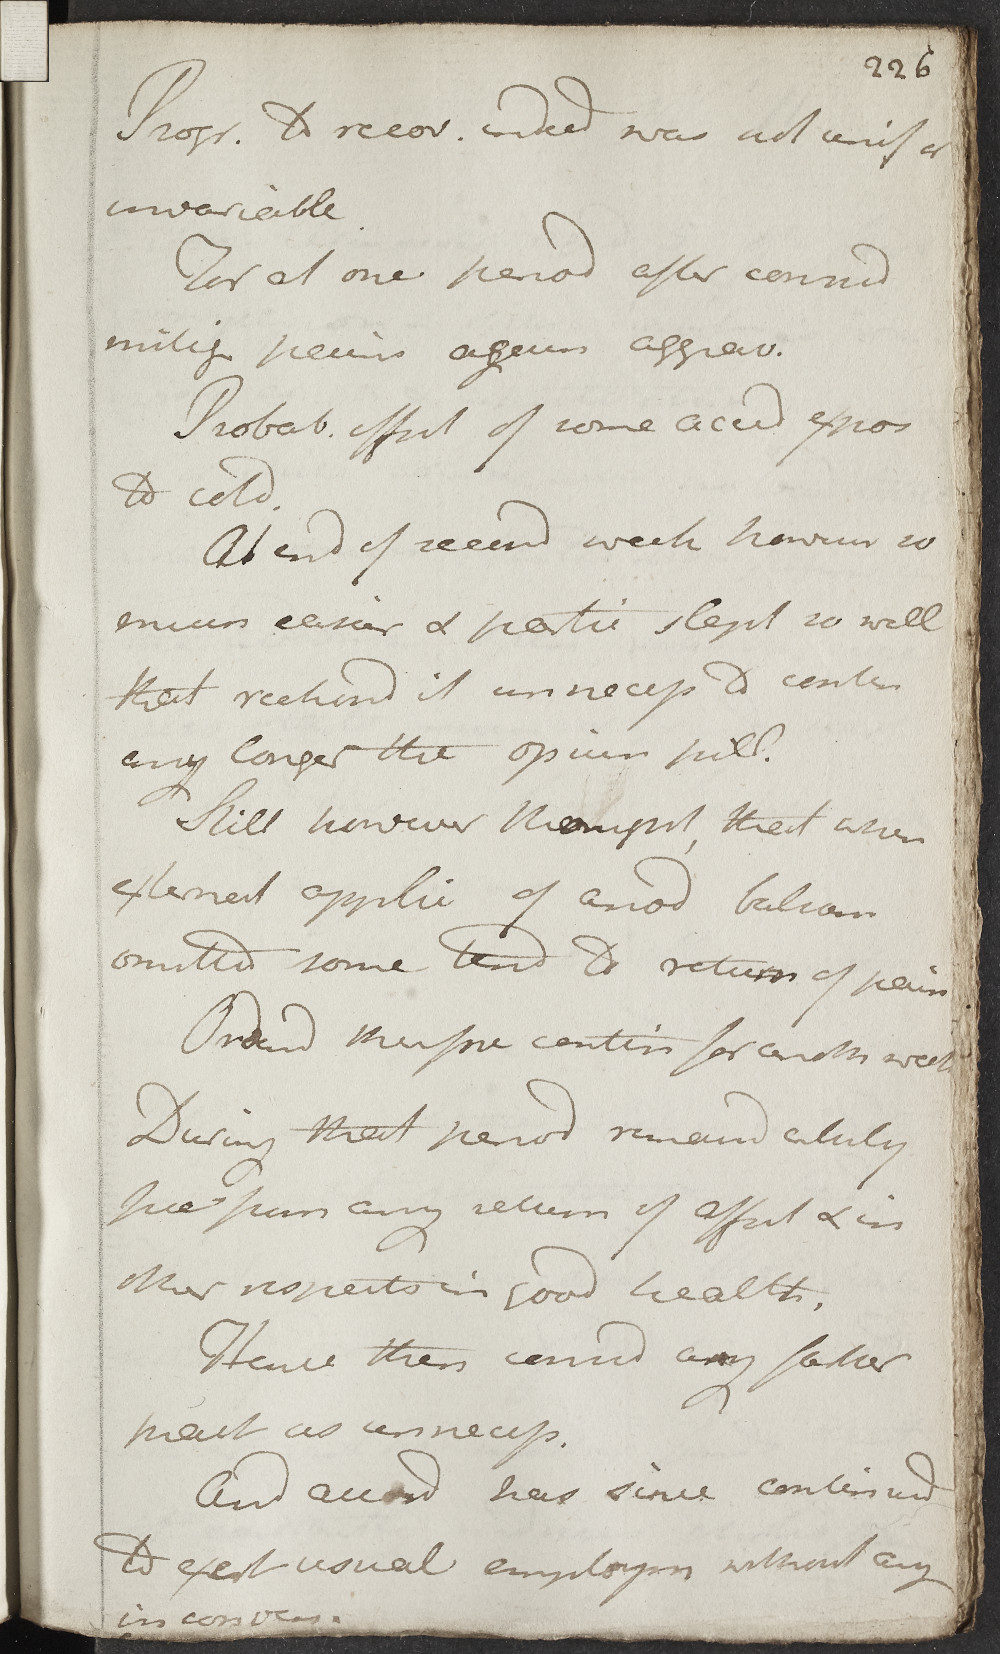 226
Progr. to recov. indeed was not unif or
invariable
For at one period after consid
mitig pains again aggrav.
Probab. effect of some accid expos
to cold.
At end of second week however so
much easier & partic slept so well
that reckond it unnecess to contin
any longer the opium pill.
Still however thought, that when
external applic of anod balsam
omitted some tend to return of pain
Orderd therfore contin for anoth week
During that period remaind absoly
free from any return of affect & in
other respects in good health.
Hence then considd any farther
pract as unnecess.
And accord has since continued
to exert usual employm without any
inconven.